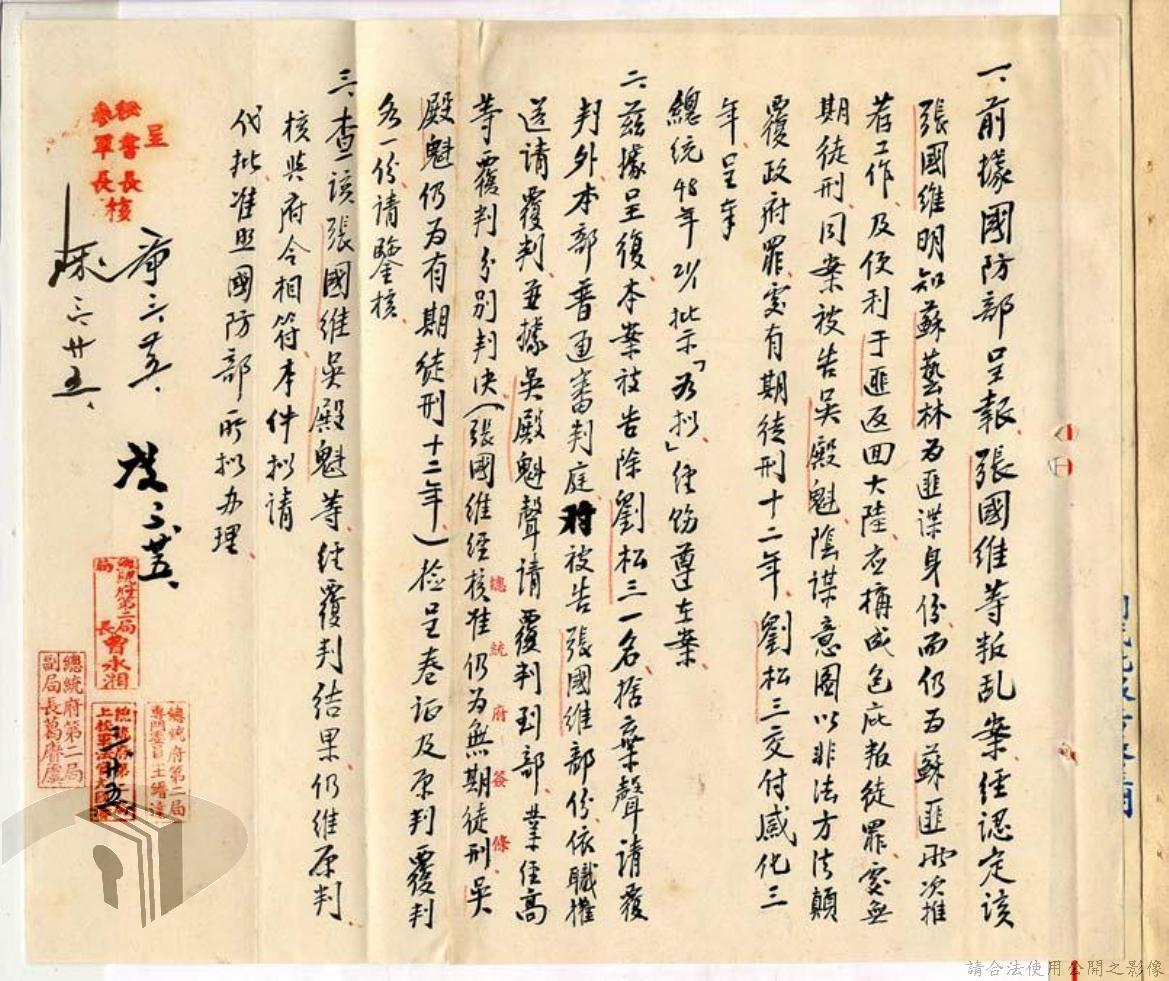 一、前據國防部呈報、張國維等叛乱案、經認定該
張國維明知蘇藝林为匪諜身份而仍为蘇匪兩次推
荐工作、及便利于匪返回大陸、应構成包庇叛徒罪、處無
期徒刑、同案被告吳殿魁、陰謀意圖以非法方法顛
覆政府罪、處有期徒刑十二年、劉松三交付感化三
年、呈奉
總統48年 批示「为拟」經飭遵在案、
二、茲據呈復本案被告除劉松三一名、捨棄聲請覆
判外、本部普通審判庭、將被告張國維部份、依職權
送請覆判、並據吳殿魁聲請覆判到部、業經高
等覆判分別判決(張國維經核准仍为無期徒刑、吳
殿魁仍为有期徒刑十二年、)檢呈卷证及原判覆判
各一份、請鑒核、
三、查該張國維吳殿魁等、經覆判結果、仍維原判、
核與府令相符、本件拟請
代批、准照國防部所拟办理、
總統府簽條
呈
秘書長核
參軍長
三、廿五、
總統府第二局
局長曹永湘
總統府第二局
副局長葛
總統府第二局
專門委員王
三、廿五
請合法使用公開之影像